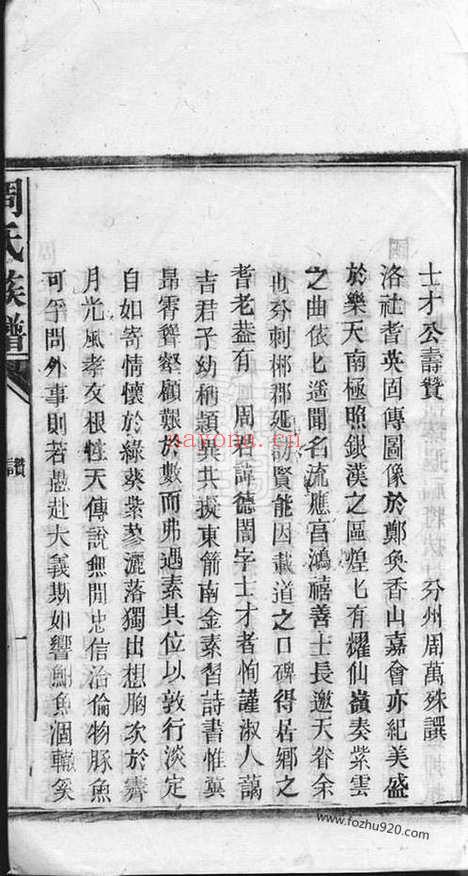 士才公壽贊
汾州周萬殊譔
洛社耆英固傳圖像於鄭奐香山嘉會亦紀美盛
於樂天南極照銀漢之區煌匕有耀仙嶺奏紫雲
之曲依匕遥聞名流應官鴻禧善士長邀天眷余
也分刺郴郡延訪賢能因載道之口碑得居鄉之
耆老葢有 周君諱德閣字士才者恂謹淑人藹
吉君子幼稱頴異共擬東箭南金素習詩書惟冀
昻霄聳壑顧艱於數而弗遇素具位以敦行淡定
自如寄情懷於綠葵紫蓼灑落獨出想胸次於霽
月光風孝友根性天傳說無閒忠信洽倫物豚魚
可孚問外事則若愚赴大義斯如響鮒魚涸轍奚
周氏族譜
贊
一
nayona.cn
www.fozhu920.com